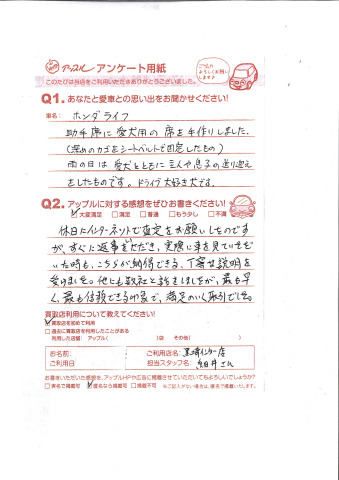 アップル アンケート用紙
このたびは当店をご利用いただきありがとうございました。
Q1. あなたと愛車との思い出をお聞かせください!
車名: ホンダライフ
助手席に愛犬用の席を手作りしました。
(深めのカゴをシートベルトで固定したもの)
雨の日は愛犬とともに主人や息子の送り迎え
をしたものです。ドライブ大好き犬です。
Q2. アップルに対する感想をぜひお書きください!
大変満足 満足 普通 もう少し 不満
休日にインターネットで査定をお願いしたのです
が、すぐに返事をいただき、実際に車を見ていただ
いた時も、こちらが納得できる、丁寧な説明を
受けました。他にも数社と話をしましたが、最も早
く、最も信頼できる印象で、満足のいく取引でした。
買取店利用について教えてください!
買取店を初めて利用
過去に買取店を利用したことがある
利用した店舗( アップル( )店 その他( )
お名前: ご利用店名: 黒崎インター店
ご利用日 担当スタッフ名: 細井さん
お書きいただいた感想を、アップルHPや広告に掲載させていただいてもよろしいでしょうか?
実名で掲載可 匿名なら掲載可 掲載不可 ※ご記入がない場合は、匿名で掲載いたします。